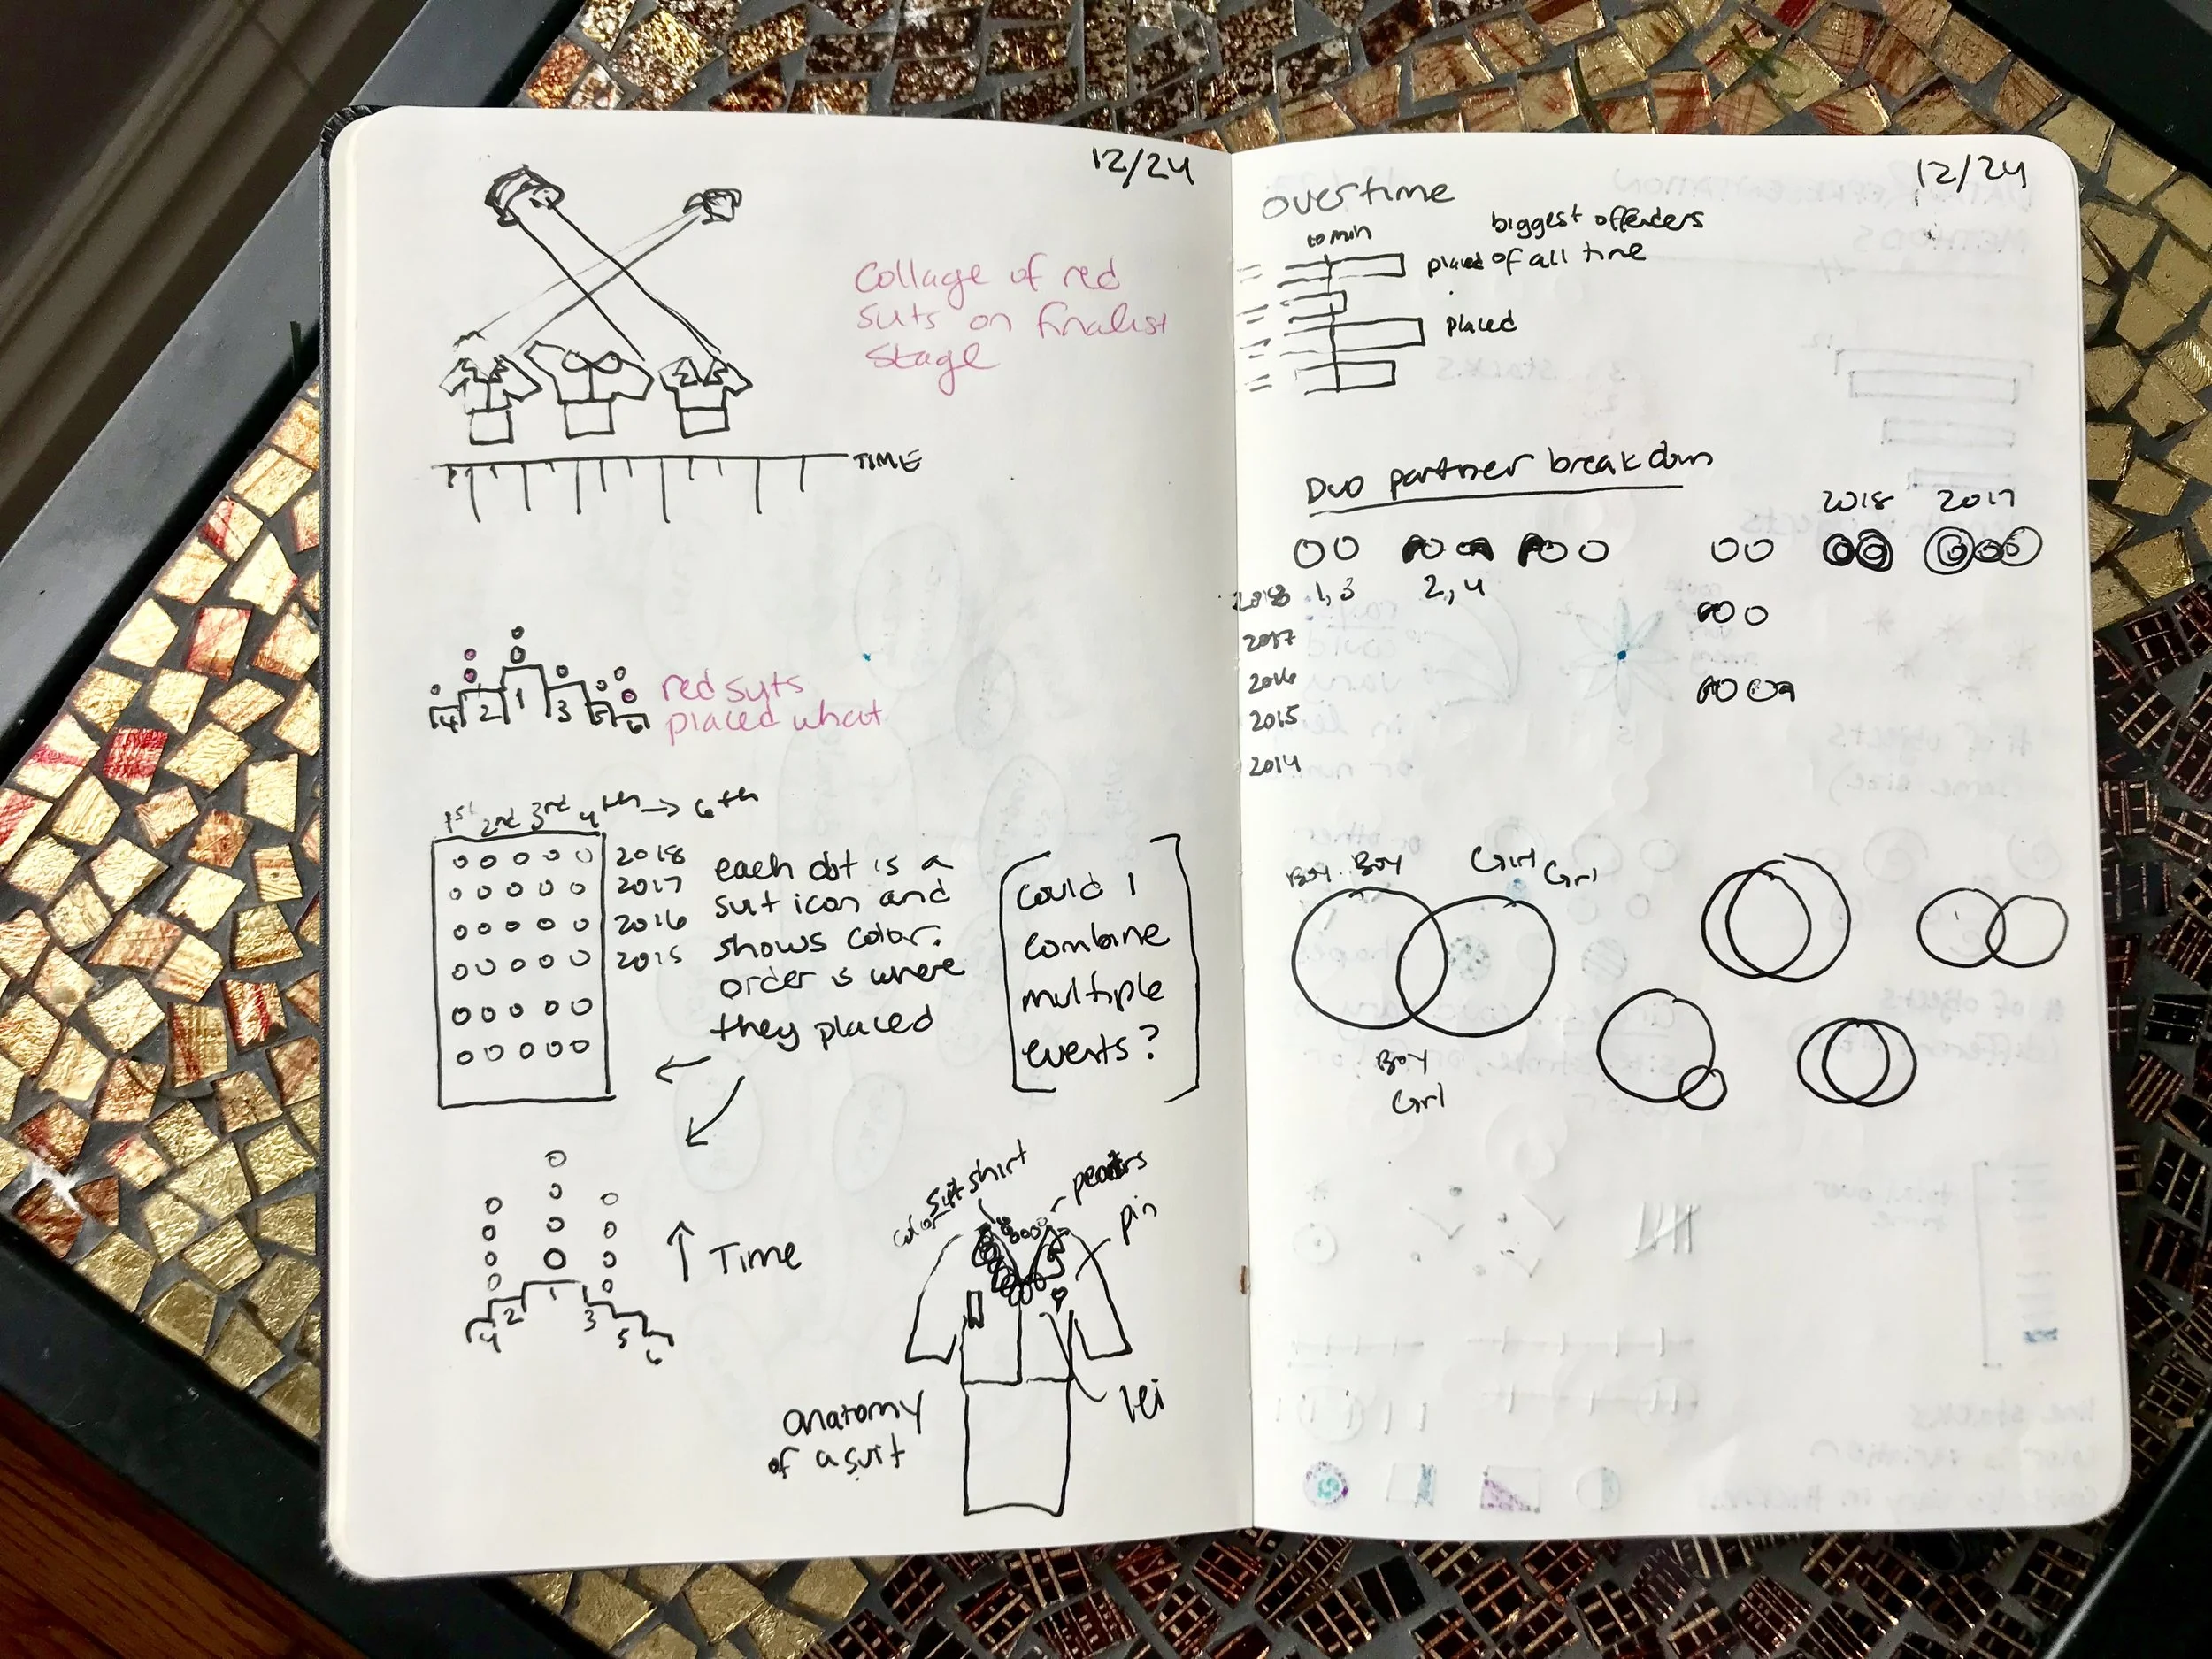 12/24
Collage of red
suts on finalist
stage
TIME
red suts
placed what
4 2 1 3 5 6
1st 2nd 3rd 4th → 6th
2018
2017
2016
2015
each dot is a
suit icon and
shows color.
order is where
they placed
Could I
combine
multiple
events?
↑ Time
4 2 1 3 5 6
color
shirt
pearls
pin
lei
anatomy
of a suit
12/24
overtime
10 min
biggest offenders
placed of all time
placed
Duo partner breakdown
2018 2017
2018 1,3 2,4
2017
2016
2015
2014
Boy Boy Girl Girl
Boy
Girl